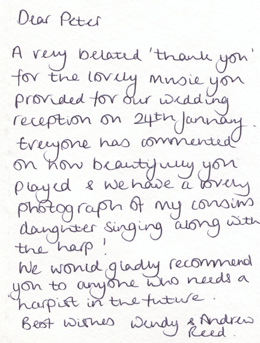 Dear Peter
A very belated 'thank you'
for the lovely music you
provided for our wedding
reception on 24th January.
Everyone has commented
on how beautifully you
played & we have a lovely
photograph of my cousins
daughter singing along with
the harp!
We would gladly recommend
you to anyone who needs a
harpist in the future.
Best Wishes Wendy & Andrew
Reed.